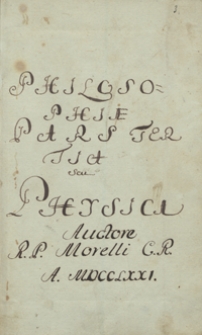 PHILOSO=
PHIÆ
PARS TER
TIA
seu
PHYSICA
Auctore
R.P. Morelli C.R.
A. MDCCLXXI.